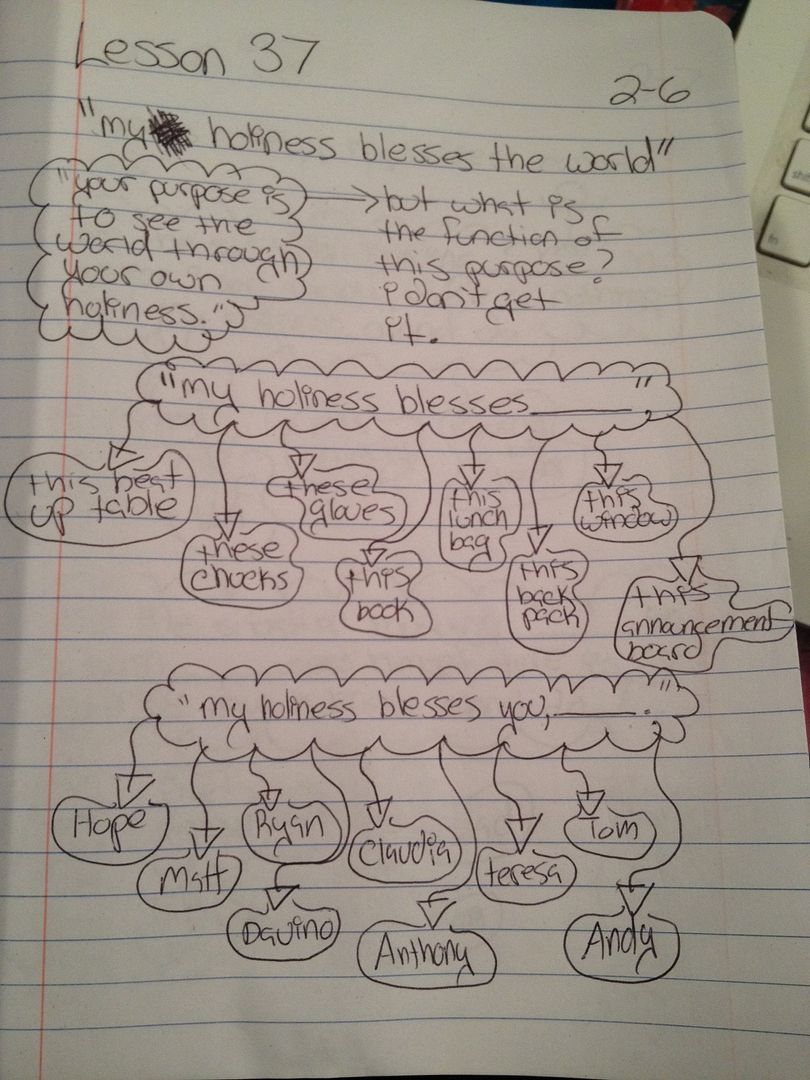 Lesson 37
2-6
"my holiness blesses the world"
"your purpose is
to see the
world through
your own
holiness."
but what is
the function of
this purpose?
i don't get
it.
"my holiness blesses ______"
this beat
up table
these
chucks
these
gloves
this
book
this
lunch
bag
this
back
pack
this
window
this
announcement
board
"my holiness blesses you, ______."
Hope
Matt
Ryan
Davino
Claudia
Anthony
teresa
Tom
Andy